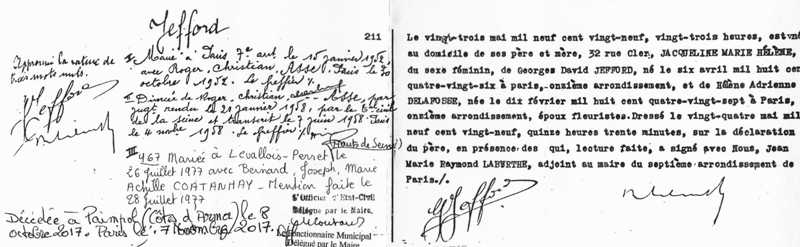 Jefford
211
Approuvé la rature de
trois mots nuls.
I Mariée à Paris 7e arrt le 15 janvier 1952
avec Roger, Christian, Asse. Paris le 30
octobre 1952. Le greffier
II Divorcée Roger Christian Asse, par
jugt rendu le 21 janvier 1958, par le
de la Seine et transcrit le 7 juin 1958. Paris
le 4 nobre 1958. Le greffier
III 467 Mariée à Levallois-Perret (Hauts de Seine) le
26 juillet 1977 avec Bernard, Joseph, Marie
Achille COATANHAY - Mention faite le
28 juillet 1977
L'Officier d'Etat-Civil
Délégué par le Maire,
Décédée à Paimpol (Côtes d'Armor) le 8
octobre 2017. Paris le, 7 novembre 2017.
Fonctionnaire Municipal
Délégué par le Maire
Le vingt-trois mai mil neuf cent vingt-neuf, vingt-trois heures, est née
au domicile de ses père et mère, 32 rue Cler, JACQUELINE MARIE HÉLÈNE,
du sexe féminin, de Georges David JEFFORD, né le six avril mil huit cent
quatre-vingt-six à paris, onzième arrondissement, et de Hélène Adrienne
DELAFOSSE, née le dix février mil huit cent quatre-vingt-sept à Paris,
onzième arrondissement, époux fleuristes. Dressé le vingt-quatre mai mil
neuf cent vingt-neuf, quinze heures trente minutes, sur la déclaration
du père, en présence des qui, lecture faite, a signé avec Nous, Jean
Marie Raymond LABURTHE, adjoint au maire du septième arrondissement de
Paris./.